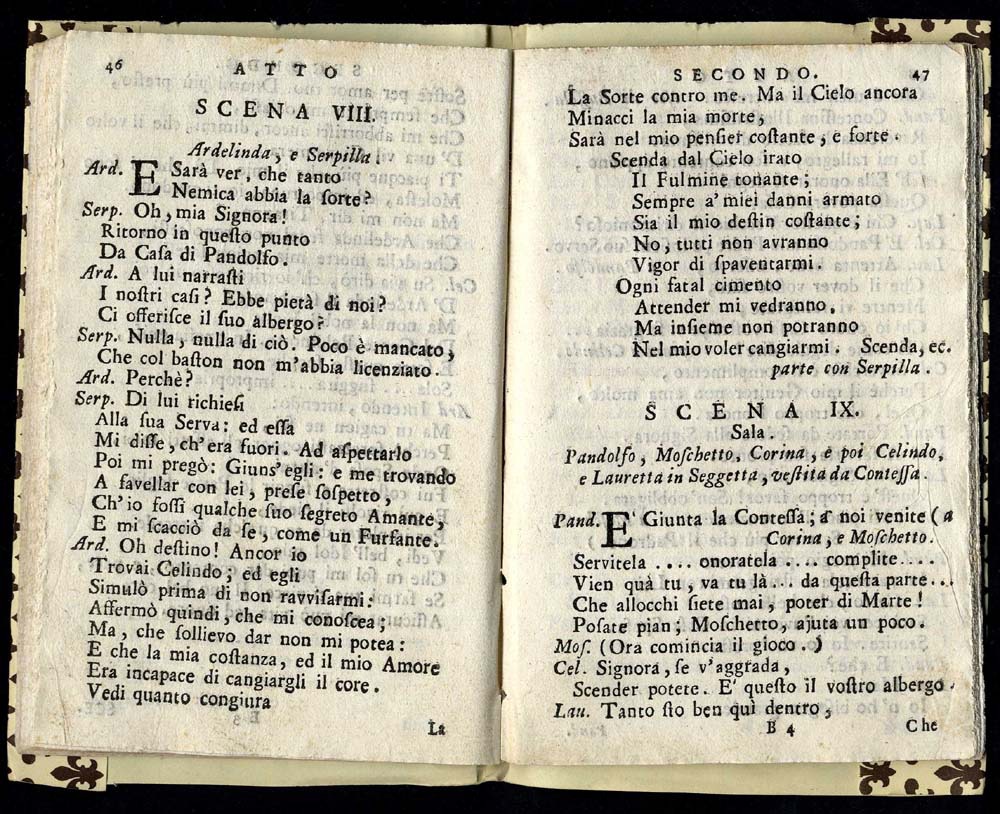 46
ATTO
SCENA VIII.
Ardelinda, e Serpilla.
Ard. E Sarà ver, che tanto
Nemica abbia la ſorte?
Serp. Oh, mia Signora!
Ritorno in queſto punto
Da Caſa di Pandolfo.
Ard. A lui narraſti
I noſtri caſi? Ebbe pietà di noi?
Ci offeriſce il ſuo albergo?
Serp. Nulla, nulla di ciò. Poco è mancato,
Che col baſton non m'abbia licenziato.
Ard. Perchè?
Serp. Di lui richieſi
Alla ſua Serva: ed eſſa
Mi diſſe, ch'era fuori. Ad aſpettarlo
Poi mi pregò: Giunſ'egli: e me trovando
A favellar con lei, preſe ſoſpetto,
Ch'io foſſi qualche ſuo ſegreto Amante,
E mi ſcacciò da ſe, come un Furfante.
Ard. Oh deſtino! Ancor io
Trovai Celindo, ed egli
Simulò prima di non ravviſarmi:
Affermò quindi, che mi conoſcea;
Ma, che ſollievo dar non mi potea:
E che la mia coſtanza, ed il mio Amore
Era incapace di cangiargli il core.
Vedi quanto congiura
La
SECONDO.
47
La Sorte contro me. Ma il Cielo ancora
Minacci la mia morte,
Sarà nel mio penſier coſtante, e forte.
Scenda dal Cielo irato
Il Fulmine tonante;
Sempre a' miei danni armato
Sia il mio deſtin coſtante;
No, tutti non avranno
Vigor di ſpaventarmi.
Ogni fatal cimento
Attender mi vedranno,
Ma inſieme non potranno
Nel mio voler cangiarmi. Scenda, ec.
parte con Serpilla.
SCENA IX.
Sala.
Pandolfo, Moſchetto, Corina, e poi Celindo,
e Lauretta in Seggetta, veſtita da Conteſſa.
Pand. E' Giunta la Conteſſa; a' noi venite (a
Corina, e Moſchetto.
Servitela .... onoratela .... complite....
Vien quà tu, va tu là... da queſta parte...
Che allocchi ſiete mai, poter di Marte!
Poſate pian; Moſchetto, ajuta un poco.
Moſ. (Ora comincia il gioco.)
Cel. Signora, ſe v'aggrada,
Scender potete. E' queſto il voſtro albergo.
Lau. Tanto ſto ben quì dentro,
B 4
Che